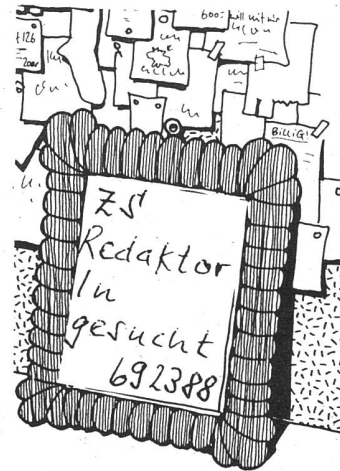 600.-
BilliG!
ZS
Redaktor
In
gesucht
692388